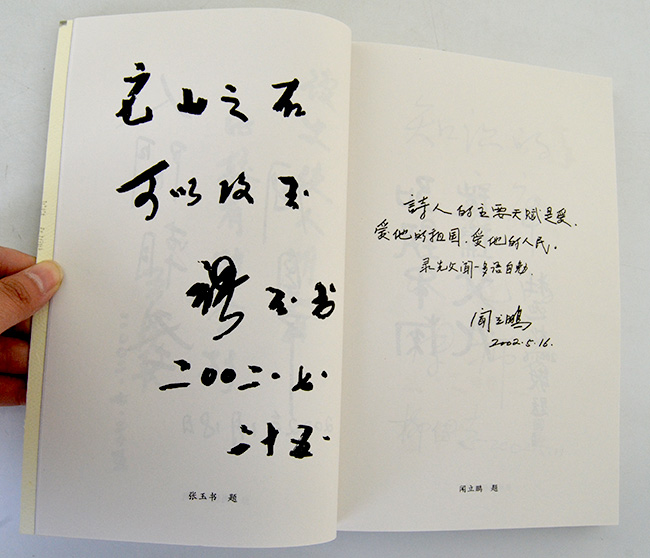 它山之石
可以攻玉
張玉书
二〇〇二·七·
二十五·
张玉书 题
詩人的主要天赋是爱，
爱他的祖国，爱他的人民。
录先父闻一多语自勉
闻立鹏
2002.5.16.
闻立鹏 题